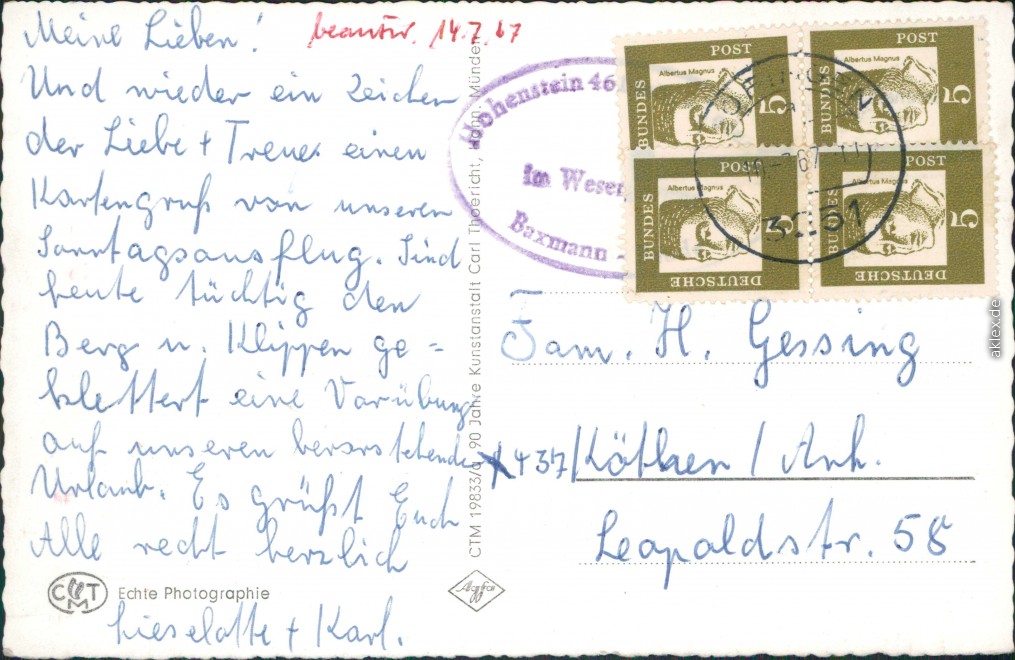 Meine Lieben!
beantw. 14.7.67
Und wieder ein Zeichen
der Liebe + Treue. einen
Kartengruß von unseren
Sonntagsausflug. Sind
heute tüchtig den
Berg u. Klippen ge =
klettert eine Vorübung
auf unseren bevorstehenden
Urlaub. Es grüßt Euch
Alle recht herzlich
Lieselotte + Karl.
CMT Echte Photographie
CTM 19833/a 90 Jahre Kunstanstalt Carl Thoericht, Hann. Münden
Agfa
Hohenstein 46
im Weser
Baxmann
POST
Albertus Magnus
BUNDES
5
POST
Albertus Magnus
BUNDES
5
DEUTSCHE
BUNDES
POST
Albertus Magnus
5
DEUTSCHE
BUNDES
POST
Albertus Magnus
5
3251
Fam. H. Gessing
437/Köthen / Anh.
Leopoldstr. 58
aklex.de